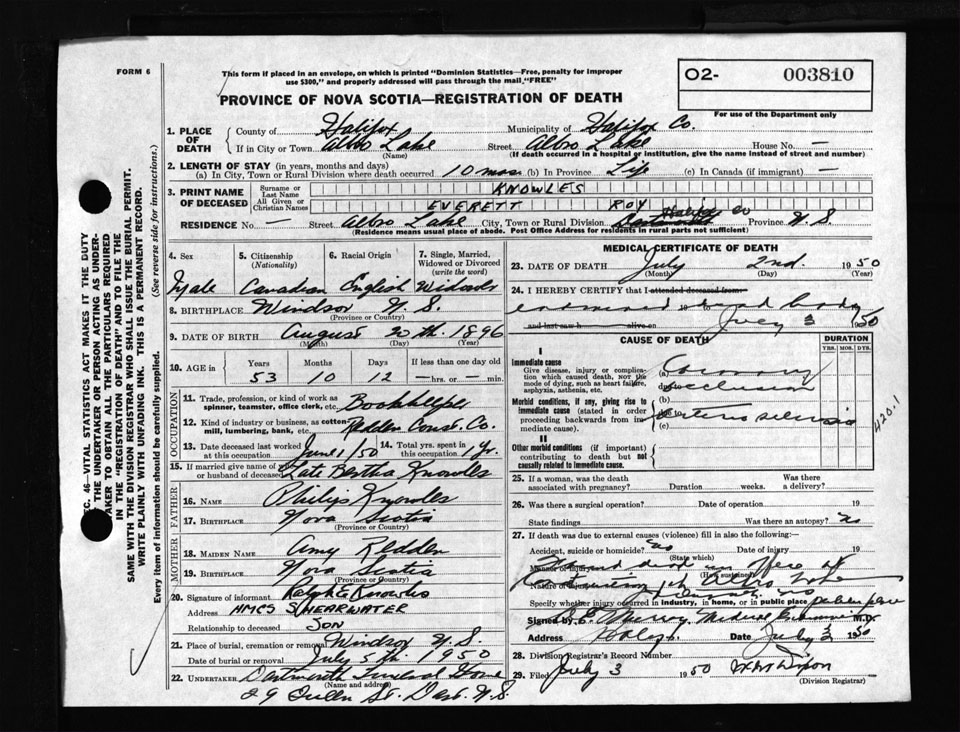 FORM 6
This form if placed in an envelope, on which is printed "Dominion Statistics—Free, penalty for improper
use $300," and properly addressed will pass through the mail "FREE"
PROVINCE OF NOVA SCOTIA—REGISTRATION OF DEATH
O2- 003810
For use of the Department only
SEC. 46—VITAL STATISTICS ACT MAKES IT THE DUTY
OF THE UNDERTAKER OR PERSON ACTING AS UNDER-
TAKER TO OBTAIN ALL THE PARTICULARS REQUIRED
IN THE "REGISTRATION OF DEATH" AND TO FILE THE
SAME WITH THE DIVISION REGISTRAR WHO SHALL ISSUE THE BURIAL PERMIT.
WRITE PLAINLY WITH UNFADING INK. THIS IS A PERMANENT RECORD.
Every item of information should be carefully supplied. (See reverse side for instructions.)
1. PLACE OF DEATH
County of Halifax Municipality of Halifax Co.
If in City or Town Albro Lake Street Albro Lake House No. —
(Name) (If death occurred in a hospital or institution, give the name instead of street and number)
2. LENGTH OF STAY (in years, months and days)
(a) In City, Town or Rural Division where death occurred 10 mos. (b) In Province Life (c) In Canada (if immigrant) —
3. PRINT NAME OF DECEASED
Surname or Last Name KNOWLES
All Given or Christian Names EVERETT ROY
RESIDENCE No. — Street Albro Lake City, Town or Rural Division Halifax Co Province N.S.
(Residence means usual place of abode. Post Office Address for residents in rural parts not sufficient)
4. Sex 5. Citizenship (Nationality) 6. Racial Origin 7. Single, Married, Widowed or Divorced (write the word)
Male Canadian English Widower
8. BIRTHPLACE Windsor N.S.
(Province or Country)
9. DATE OF BIRTH August 20th. 1896
(Month) (Day) (Year)
10. AGE in Years Months Days If less than one day old
53 10 12 — hrs. or — min.
OCCUPATION
11. Trade, profession, or kind of work as spinner, teamster, office clerk, etc. Bookkeeper
12. Kind of industry or business, as cotton mill, lumbering, bank, etc. Redden Const. Co.
13. Date deceased last worked at this occupation June 1/50 14. Total yrs. spent in this occupation 1 yr.
15. If married give name of wife or husband of deceased Late Bertha Knowles
FATHER
16. NAME Philip Knowles
17. BIRTHPLACE Nova Scotia
(Province or Country)
MOTHER
18. MAIDEN NAME Amy Redden
19. BIRTHPLACE Nova Scotia
(Province or Country)
20. Signature of informant Ralph E Knowles
Address HMCS SHEARWATER
Relationship to deceased SON
21. Place of burial, cremation or removal Windsor N.S.
Date of burial or removal July 5th 1950
22. UNDERTAKER Dartmouth Funeral Home
(Name and address)
29 Queen St. Dart. N.S.
MEDICAL CERTIFICATE OF DEATH
23. DATE OF DEATH July 2nd. 1950
(Month) (Day) (Year)
24. I HEREBY CERTIFY that I attended deceased from
examined dead body
and last saw h alive on July 3 1950
CAUSE OF DEATH
DURATION
YRS. MOS. DYS.
I
Immediate cause
Give disease, injury or complication which caused death, not the mode of dying, such as heart failure, asphyxia, asthenia, etc.
(a) Coronary
due to occlusion
Morbid conditions, if any, giving rise to immediate cause (stated in order proceeding backwards from immediate cause).
(b)
(c)
420.1
II
Other morbid conditions (if important) contributing to death but not causally related to immediate cause.
25. If a woman, was the death associated with pregnancy? Duration weeks. Was there a delivery?
26. Was there a surgical operation? Date of operation 19
State findings Was there an autopsy? no
27. If death was due to external causes (violence) fill in also the following:—
Accident, suicide or homicide? no Date of injury 19
(State which)
Manner of injury Found dead in office of
(How sustained)
Nature of injury
Specify whether injury occurred in industry, in home, or in public place public place
Signed by Murray Medical Examiner M.D.
Address Date July 3 1950
28. Division Registrar's Record Number
29. Filed July 3 1950 Dixon
(Division Registrar)